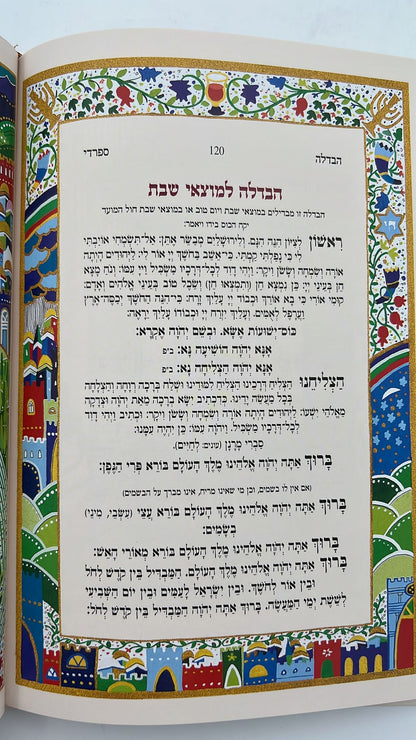 הבדלה 120 ספרדי
הבדלה למוצאי שבת
הבדלה זו מבדילים במוצאי שבת ויום טוב או במוצאי שבת חול המועד
יקח הכוס בידו ויאמר:
רִאשׁוֹן לְצִיּוֹן הִנֵּה הִנָּם. וְלִירוּשָׁלַיִם מְבַשֵּׂר אֶתֵּן: אַל־תִּשְׂמְחִי אוֹיַבְתִּי
לִי כִּי נָפַלְתִּי קַמְתִּי. כִּי־אֵשֵׁב בַּחֹשֶׁךְ יְיָ אוֹר לִי: לַיְּהוּדִים הָיְתָה
אוֹרָה וְשִׂמְחָה וְשָׂשׂוֹן וִיקָר: וַיְהִי דָוִד לְכָל־דְּרָכָיו מַשְׂכִּיל וַיְיָ עִמּוֹ: וְנֹחַ מָצָא
חֵן בְּעֵינֵי יְיָ: כֵּן נִמְצָא חֵן (וְתִמְצְאוּ חֵן) וְשֵׂכֶל־טוֹב בְּעֵינֵי אֱלֹהִים וְאָדָם:
קוּמִי אוֹרִי כִּי בָא אוֹרֵךְ וּכְבוֹד יְיָ עָלַיִךְ זָרָח: כִּי־הִנֵּה הַחֹשֶׁךְ יְכַסֶּה־אֶרֶץ
וַעֲרָפֶל לְאֻמִּים. וְעָלַיִךְ יִזְרַח יְיָ וּכְבוֹדוֹ עָלַיִךְ יֵרָאֶה:
כּוֹס־יְשׁוּעוֹת אֶשָּׂא. וּבְשֵׁם יְהֹוָה אֶקְרָא:
אָנָּא יְהֹוָה הוֹשִׁיעָה נָּא: ב״פ
אָנָּא יְהֹוָה הַצְלִיחָה נָּא: ב״פ
הַצְלִיחֵנוּ הַצְלִיחַ דְּרָכֵינוּ הַצְלִיחַ לִמּוּדֵינוּ וּשְׁלַח בְּרָכָה רְוָחָה וְהַצְלָחָה
בְּכָל מַעֲשֵׂה יָדֵינוּ. כְּדִכְתִיב יִשָּׂא בְרָכָה מֵאֵת יְהֹוָה וּצְדָקָה
מֵאֱלֹהֵי יִשְׁעוֹ: לַיְּהוּדִים הָיְתָה אוֹרָה וְשִׂמְחָה וְשָׂשׂוֹן וִיקָר: וּכְתִיב וַיְהִי דָוִד
לְכָל־דְּרָכָיו מַשְׂכִּיל. וַיהֹוָה עִמּוֹ: כֵּן יְהֹוָה עִמָּנוּ:
סַבְרִי מָרָנָן (עונים: לְחַיִּים).
בָּרוּךְ אַתָּה יְהֹוָה אֱלֹהֵינוּ מֶלֶךְ הָעוֹלָם בּוֹרֵא פְּרִי הַגֶּפֶן:
(אם אין לו בשמים, וכן מי שאינו מריח, אינו מברך על הבשמים)
בָּרוּךְ אַתָּה יְהֹוָה אֱלֹהֵינוּ מֶלֶךְ הָעוֹלָם בּוֹרֵא עֲצֵי (עִשְׂבֵי, מִינֵי)
בְשָׂמִים:
בָּרוּךְ אַתָּה יְהֹוָה אֱלֹהֵינוּ מֶלֶךְ הָעוֹלָם בּוֹרֵא מְאוֹרֵי הָאֵשׁ:
בָּרוּךְ אַתָּה יְהֹוָה אֱלֹהֵינוּ מֶלֶךְ הָעוֹלָם. הַמַּבְדִּיל בֵּין קֹדֶשׁ לְחֹל
וּבֵין אוֹר לְחֹשֶׁךְ. וּבֵין יִשְׂרָאֵל לָעַמִּים וּבֵין יוֹם הַשְּׁבִיעִי
לְשֵׁשֶׁת יְמֵי הַמַּעֲשֶׂה. בָּרוּךְ אַתָּה יְהֹוָה הַמַּבְדִּיל בֵּין קֹדֶשׁ לְחֹל: